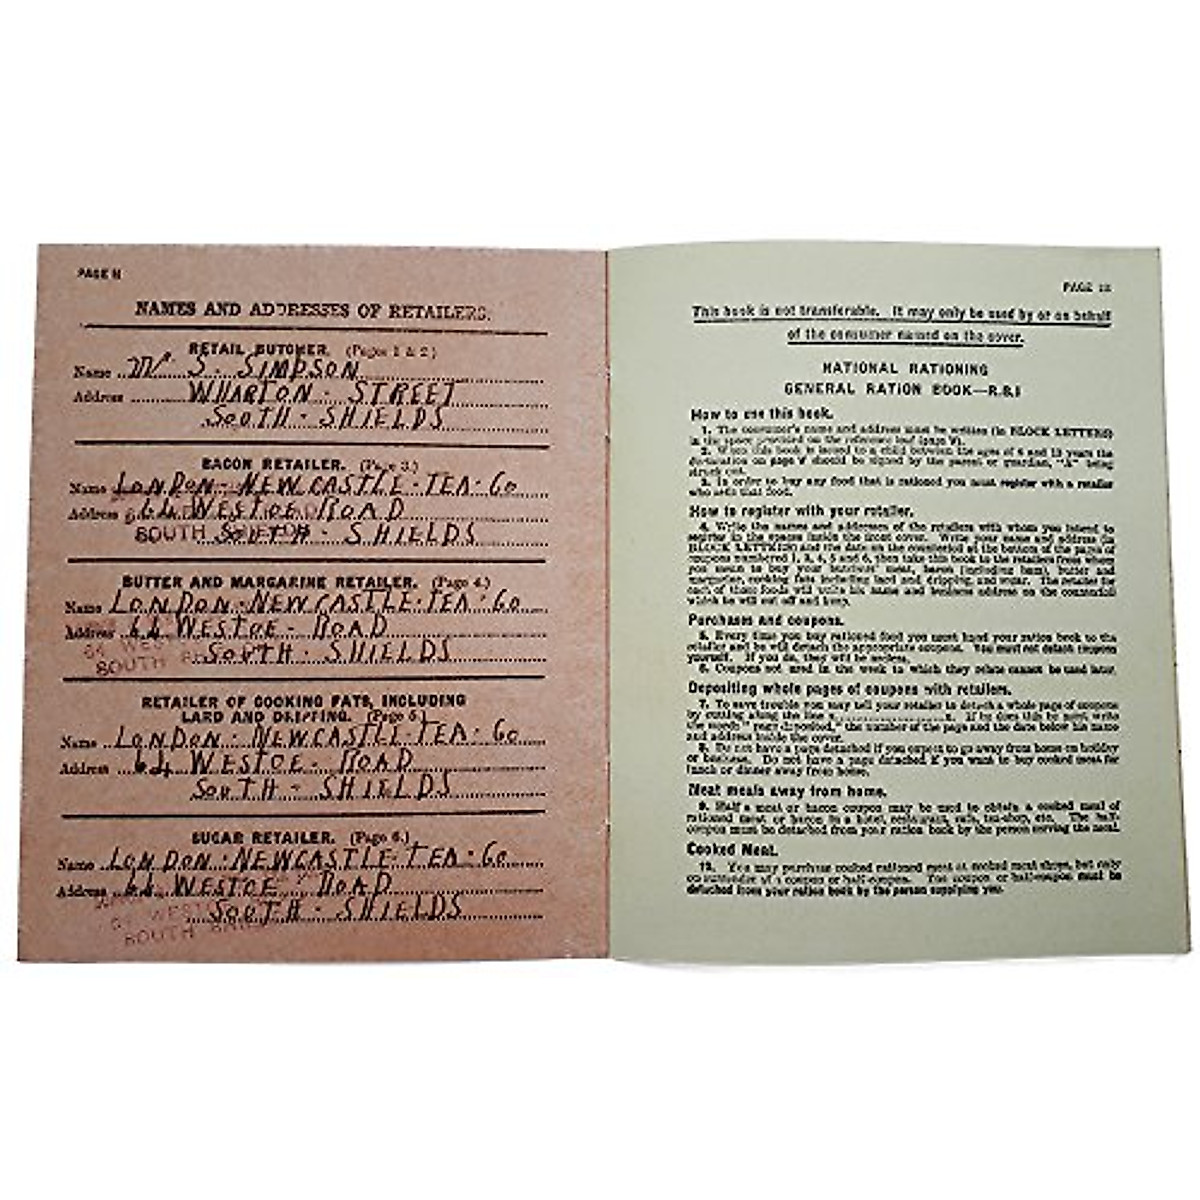 PAGE II
NAMES AND ADDRESSES OF RETAILERS.
RETAIL BUTCHER. (Pages 1 & 2)
Name Mr S. SIMPSON
Address WHARTON - STREET
SOUTH - SHIELDS
BACON RETAILER. (Page 3.)
Name LONDON - NEWCASTLE - TEA - Co
Address 64 WESTOE ROAD
SOUTH - SHIELDS
BUTTER AND MARGARINE RETAILER. (Page 4.)
Name LONDON - NEWCASTLE - TEA - Co
Address 64 WESTOE - ROAD
SOUTH - SHIELDS
RETAILER OF COOKING FATS, INCLUDING
LARD AND DRIPPING. (Page 5.)
Name LONDON - NEWCASTLE - TEA - Co
Address 64 WESTOE - ROAD
SOUTH - SHIELDS
SUGAR RETAILER. (Page 6.)
Name LONDON - NEWCASTLE - TEA - Co
Address 64 WESTOE - ROAD
SOUTH - SHIELDS
PAGE III
This book is not transferable. It may only be used by or on behalf
of the consumer named on the cover.
NATIONAL RATIONING
GENERAL RATION BOOK—R.B.1
How to use this book.
1. The consumer's name and address must be written (in BLOCK LETTERS)
in the space provided on the reference leaf (page V).
2. When this book is issued to a child between the ages of 6 and 18 years the
declaration on page V should be signed by the parent or guardian, "A" being
struck out.
3. In order to buy any food that is rationed you must register with a retailer
who sells that food.
How to register with your retailer.
4. Write the names and addresses of the retailers with whom you intend to
register in the spaces inside the front cover. Write your name and address (in
BLOCK LETTERS) and the date on the counterfoil at the bottom of the pages of
coupons numbered 1, 3, 4, 5 and 6, then take this book to the retailers from whom
you mean to buy your butchers' meat, bacon (including ham), butter and
margarine, cooking fats including lard and dripping, and sugar. The retailer for
each of these foods will write his name and business address on the counterfoil
which he will cut off and keep.
Purchases and coupons.
5. Every time you buy rationed food you must hand your ration book to the
retailer and he will detach the appropriate coupons. You must not detach coupons
yourself. If you do, they will be useless.
6. Coupons not used in the week to which they relate cannot be used later.
Depositing whole pages of coupons with retailers.
7. To save trouble you may tell your retailer to detach a whole page of coupons
by cutting along the line x..............................x. If he does this he must write
the words "year deposited," the number of the page and the date below his name
and address inside the cover.
8. Do not have a page detached if you expect to go away from home on holiday
or business. Do not have a page detached if you want to buy cooked meat for
lunch or dinner away from home.
Meat meals away from home.
9. Half a meat or bacon coupon may be used to obtain a cooked meal of
rationed meat or bacon in a hotel, restaurant, cafe, tea-shop, etc. The half-
coupon must be detached from your ration book by the person serving the meal.
Cooked Meat.
10. You may purchase cooked rationed meat at cooked meat shops, but only
on surrender of a coupon or half-coupon. The coupon or half-coupon must be
detached from your ration book by the person supplying you.